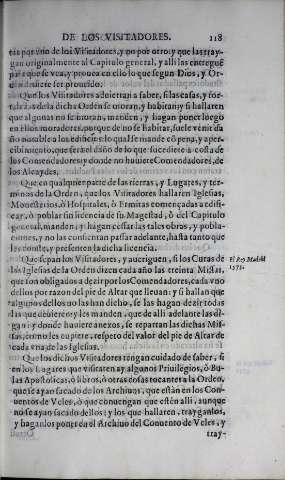 DE LOS VISITADORES. 118
tas por vno de los Visitadores, y no por otro: y que las tray-
gan originalmente al Capitulo general, y alli las entregué
para que se vea, y prouea en ello lo que segun Dios, y Or-
den deuiere ser proueido.
Que los Visitadores a de
en ellos moradores, porque de no se habitar, suele venir da
ño notable a los edificios: lo qual se mande cō pena, y aper-
cibimiento, que será el daño de lo que sucediere a costa de
los Comendadores: y donde no huuiere Comendadores, de
los Alcaydes.
Que en qualquier parte de las tierras, y Lugares, y ter-
minos de la Orden, que los Visitadores hallaren Iglesias,
Monesterios, ò Hospitales, ò Ermitas començadas a edifi-
car, ò poblar sin licencia de su Magestad, ò del Capitulo
general, manden, y hagan cessar las tales obras, y pobla-
ciones, y no las consientan passar adelante, hasta tanto que
les conste, y presenten la dicha licencia.
Que sepan los Visitadores, y aueriguen, si los Curas de
las Iglesias de la Orden dizen cada año las treinta Missas,
que son obligados a dezir por los Comendadores, cada vno
dellos por razon del pie de Altar que lleuan: y si hallan que
algunos dellos no las han dicho, se las hagan dezir todas
las que deuieren: y les manden, que de alli adelante las di-
gan: y donde huuiere anexos, se repartan las dichas Mis-
sas, como les cupiere, respeto del valor del pie de Altar de
cada vna de las Iglesias.
El Rey Madrid
1573.
Que los dichos Visitadores tengan cuidado de saber, si
en los Lugares que visitaren ay algunos Priuilegios, ò Bu-
las Apostolicas, ò libros, ò otras cosas tocantes a la Orden,
que se ayan sacado de los Archiuos, que están en los Con-
uentos de Veles, ò que conuengan que estén alli, aunque
no se ayan sacado dellos: y los que hallaren, trayganlos,
y haganlos poner en el Archiuo del Conuento de Veles, y
tray-